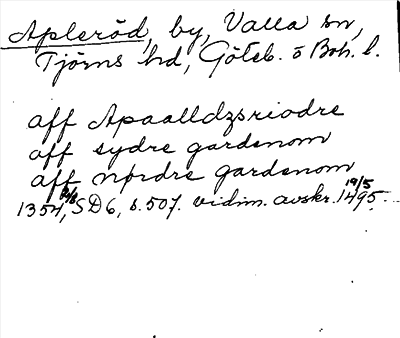 Apleröd, by, Valla sn,
Tjörns hd, Göteb. o Boh. l.
aff Apaalldzsriodre
aff sydre gardenom
aff nørdre gardenom
1354, SD6, s. 507. vidim. avskr. 19/5 1495.